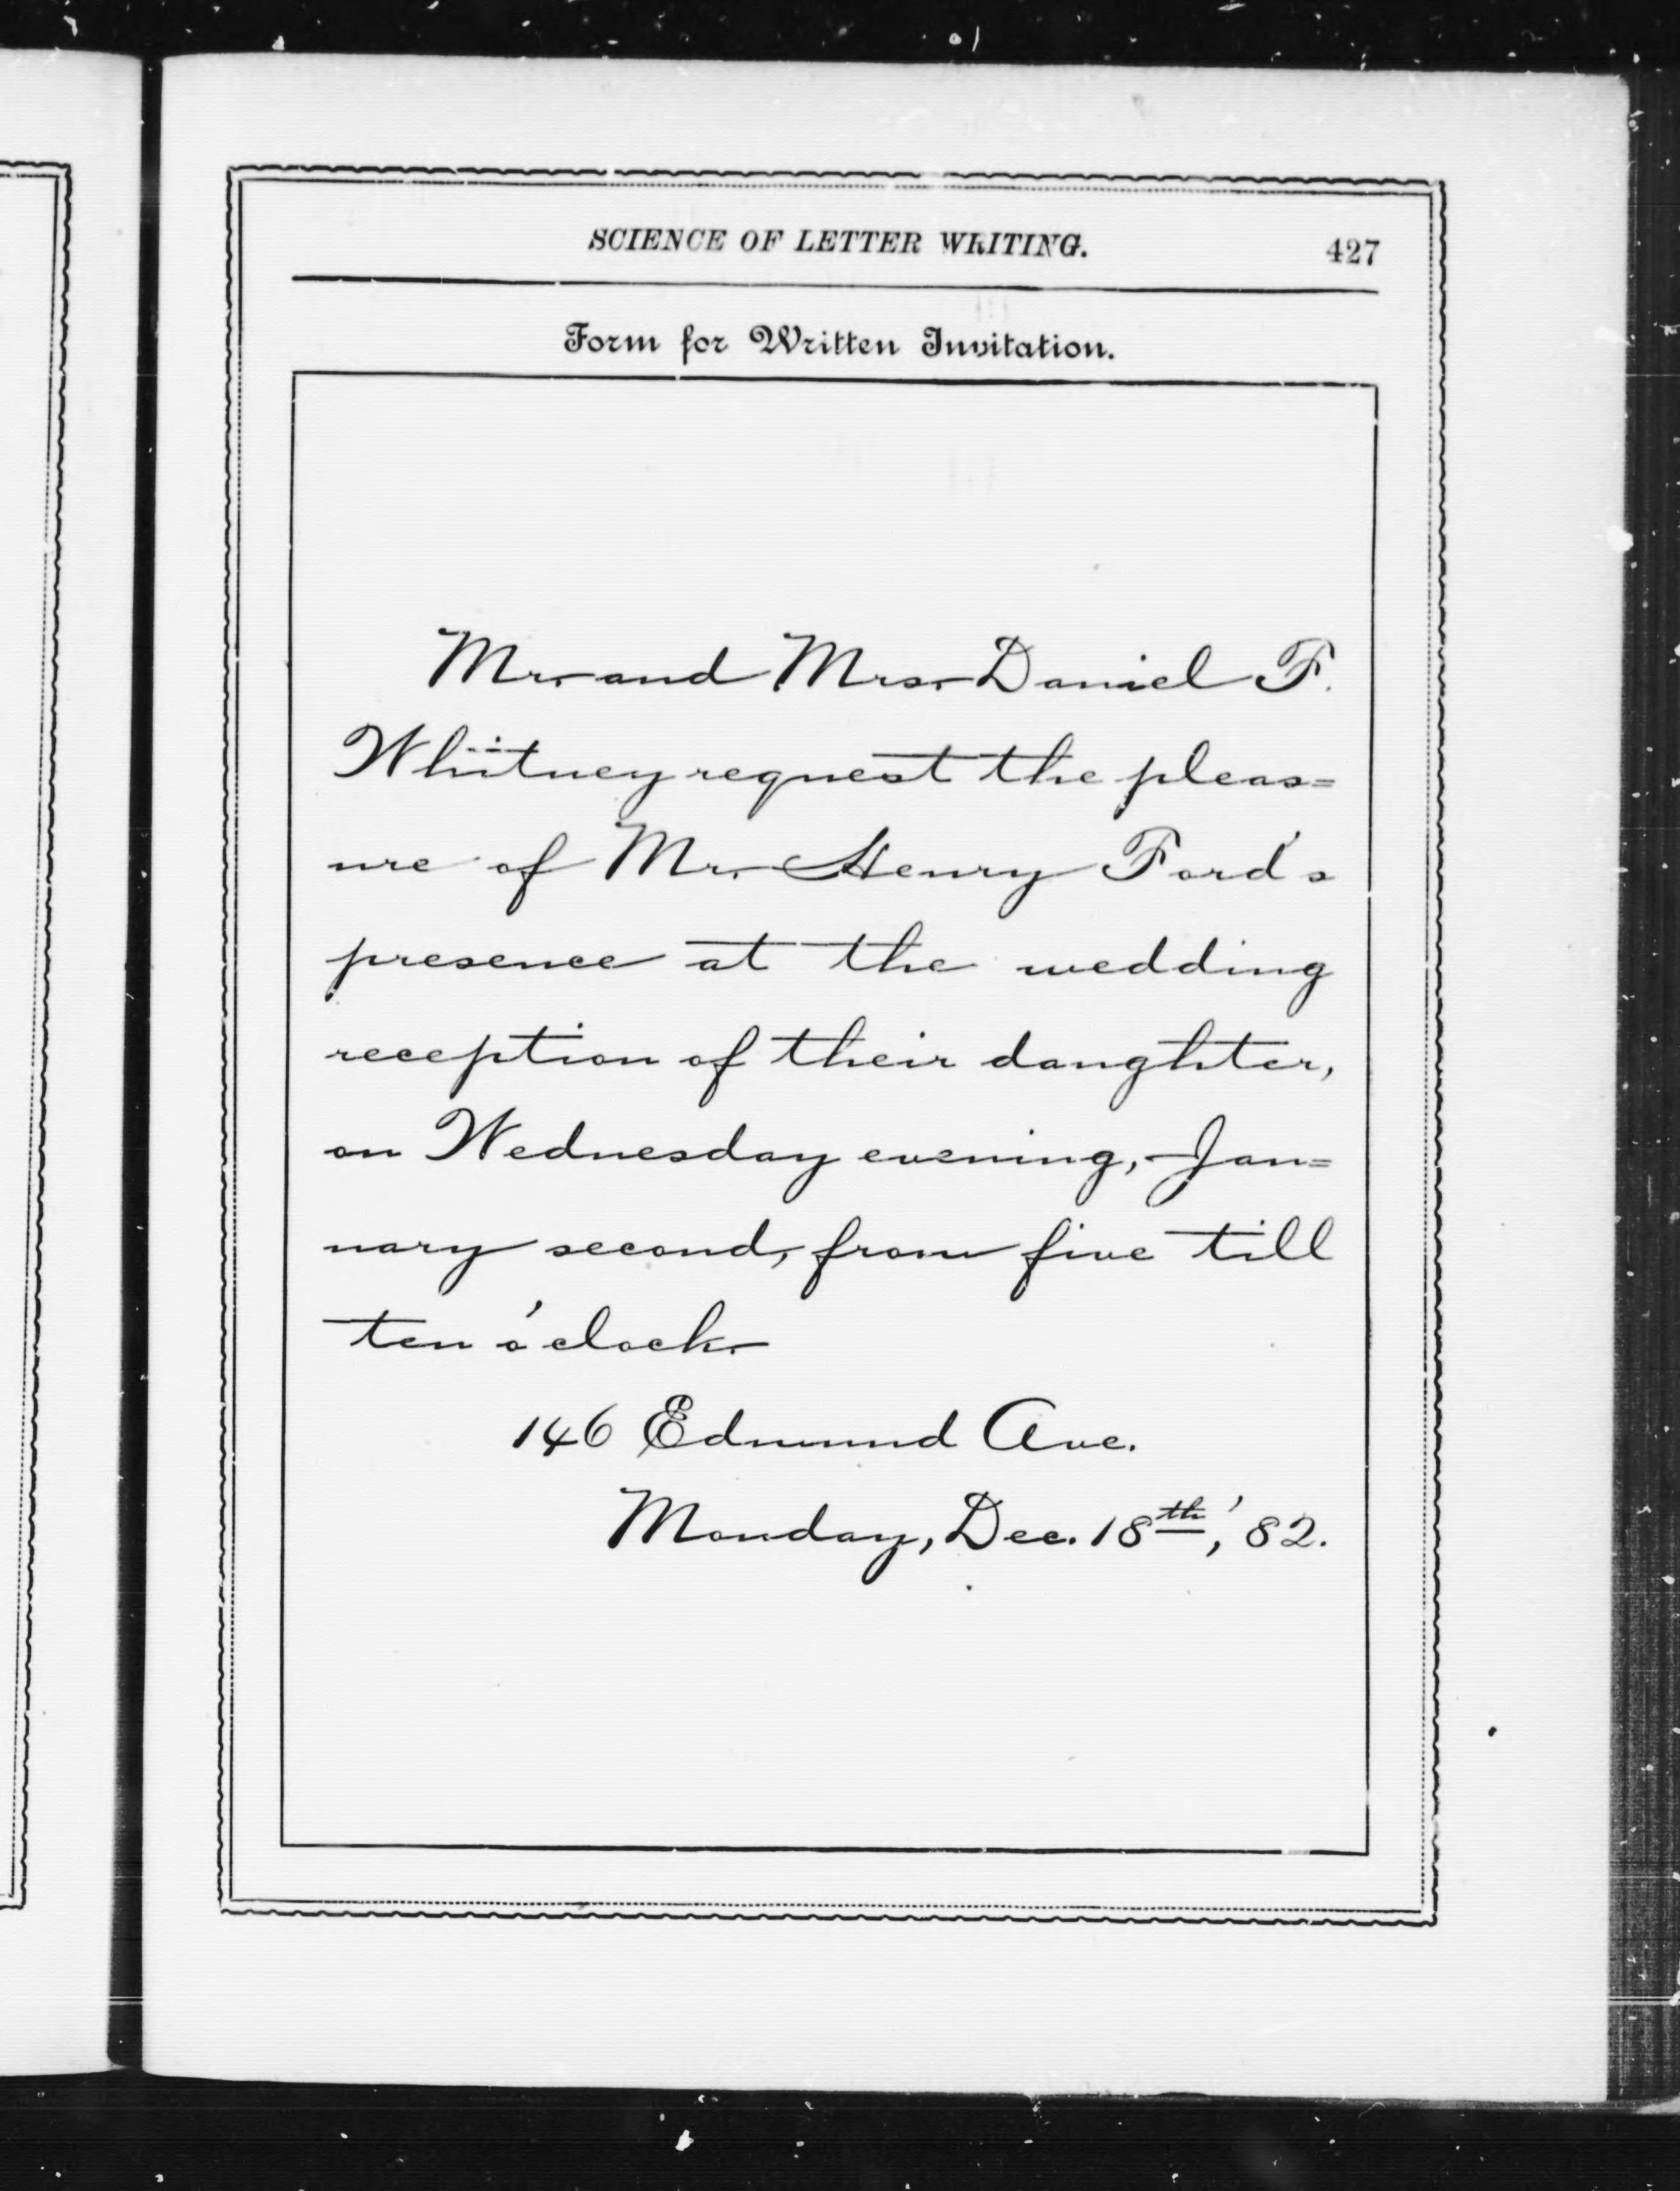 SCIENCE OF LETTER WRITING. 427
Form for Written Invitation.
Mr. and Mrs. Daniel F.
Whitney request the pleas=
ure of Mr. Henry Ford's
presence at the wedding
reception of their daughter,
on Wednesday evening, Jan=
uary second, from five till
ten o'clock.
146 Edmund Ave.
Monday, Dec. 18th, '82.